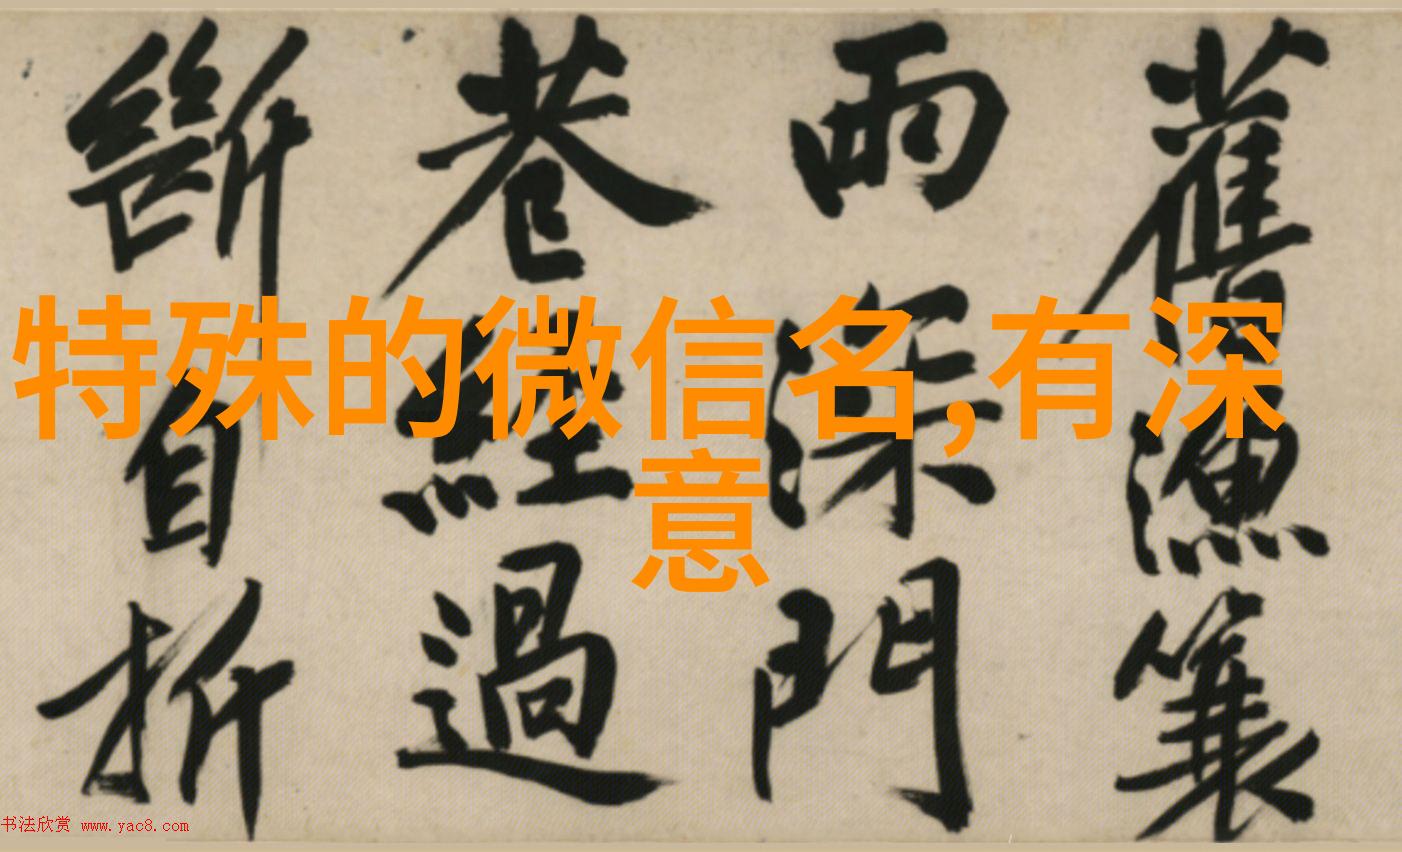 特殊的微信名,有深
意
舊漁簑
雨深門
巷經過
斷自折
书法欣赏 www.yac8.com